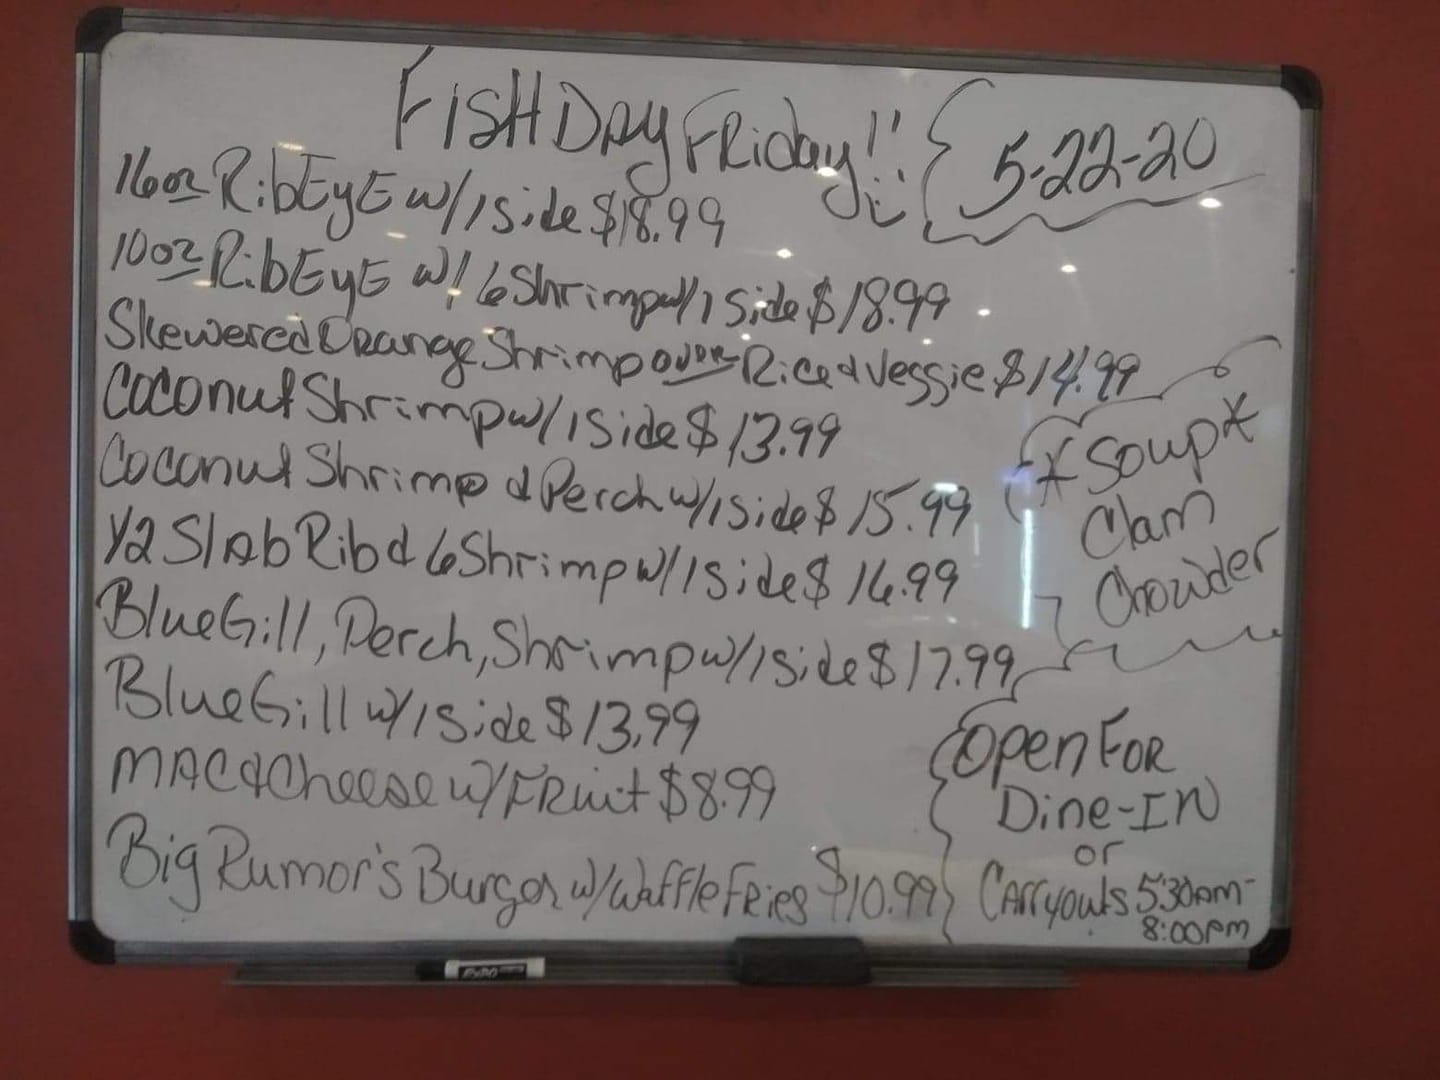 FISH DAY FRiday!!
5-22-20
16oz RibEyE w/1 side $18.99
10oz RibEyE w/ 6 Shrimp w/1 Side $18.99
Skewered Orange Shrimp over Rice & Veggie $14.99
Coconut Shrimp w/1 Side $13.99
Coconut Shrimp & Perch w/1 side $15.99
1/2 Slab Rib & 6 Shrimp w/1 Side $16.99
Blue Gill, Perch, Shrimp w/1 Side $17.99
Blue Gill w/1 Side $13.99
MAC & Cheese w/ FRuit $8.99
Big Rumor's Burger w/ Waffle FRies $10.99
*Soup*
Clam
Chowder
Open FOR
Dine-IN
or
CARRyouts 5:30pm-
8:00pm
EXPO